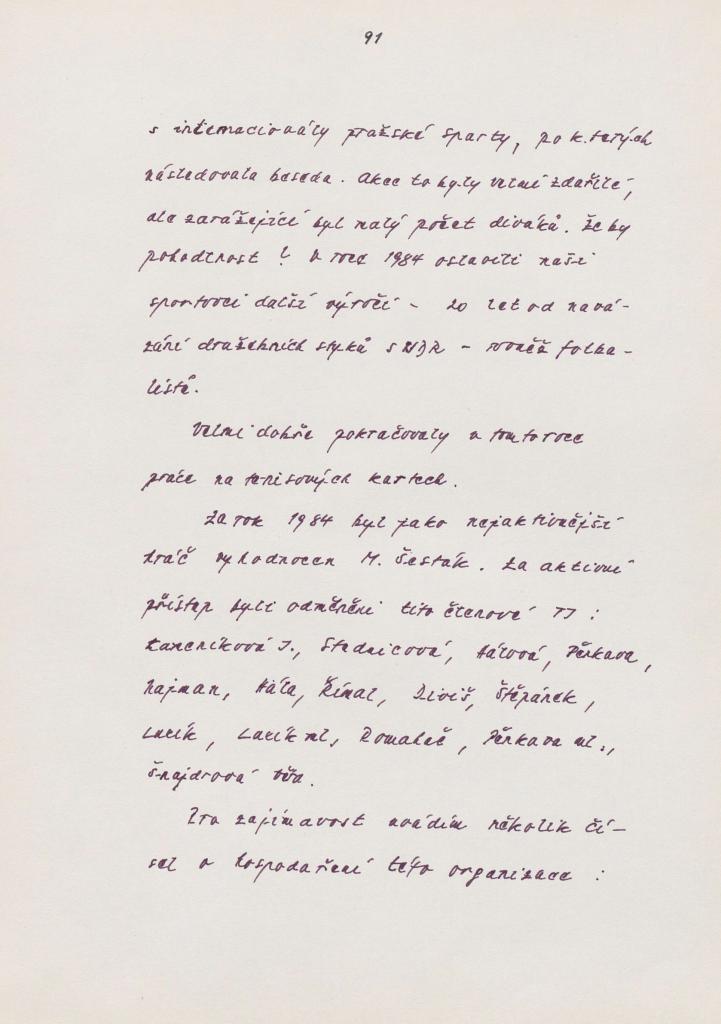 91
s internacionály pražské Sparty, po kterých
následovala beseda. Akce to byly velmi zdařilé,
ale zarážející byl malý počet diváků. Že by
pohodlnost? V roce 1984 oslavili naši
sportovci další výročí - 20 let od navá-
zání družebních styků s NDR - rovněž fotba-
listé.
Velmi dobře pokračovaly v tomto roce
práce na tenisových kurtech.
Za rok 1984 byl jako nejaktivnější
hráč vyhodnocen M. Šesták. Za aktivní
přístup byli odměněni tito členové TJ:
Kameníková J., Studnicová, Hálová, Pěrkava,
Najman, Hála, Římal, Diviš, Štěpánek,
Lacík, Lacík ml., Pěrkava ml.,
Šnajdrová Věra.
Pro zajímavost uvádím několik čí-
sel o hospodaření této organizace: